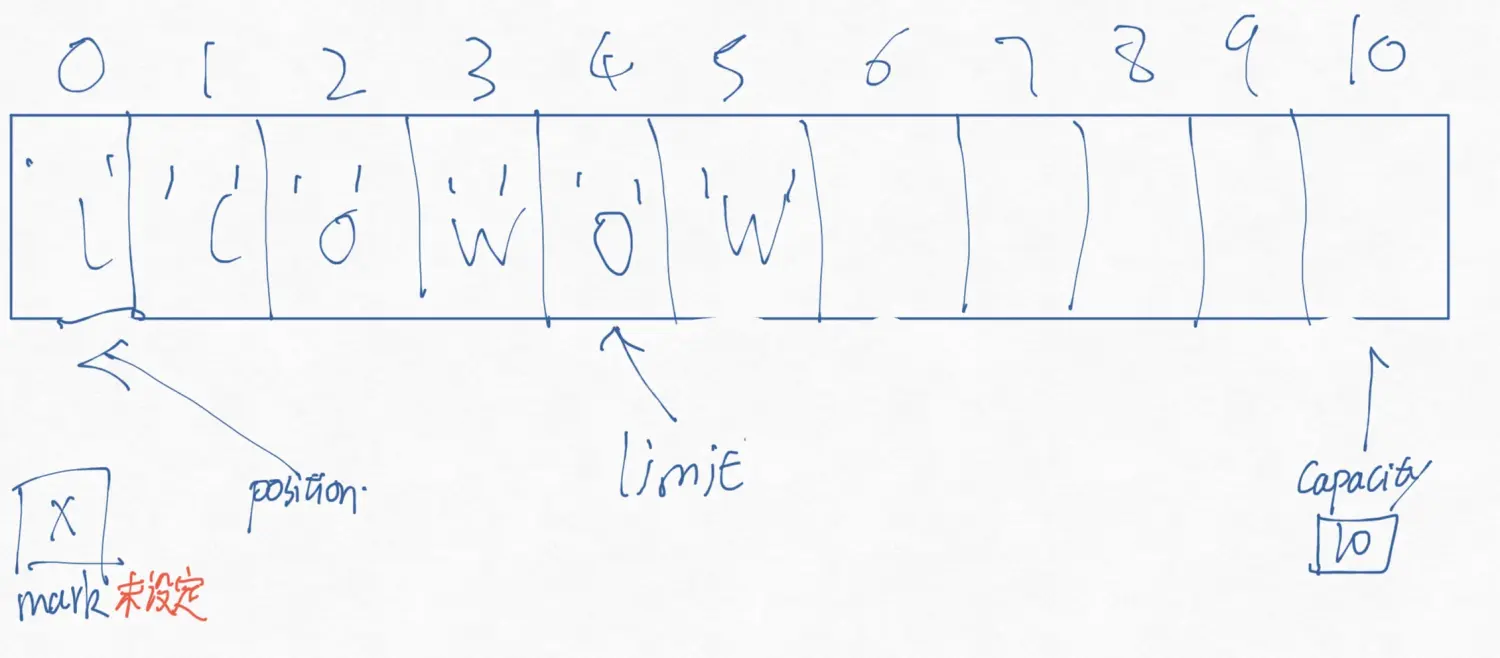 0 1 2 3 4 5 6 7 8 9 10
'l' 'l' 'o' 'w' 'o' 'w'
position.
limit
capacity
10
X
mark 未设定